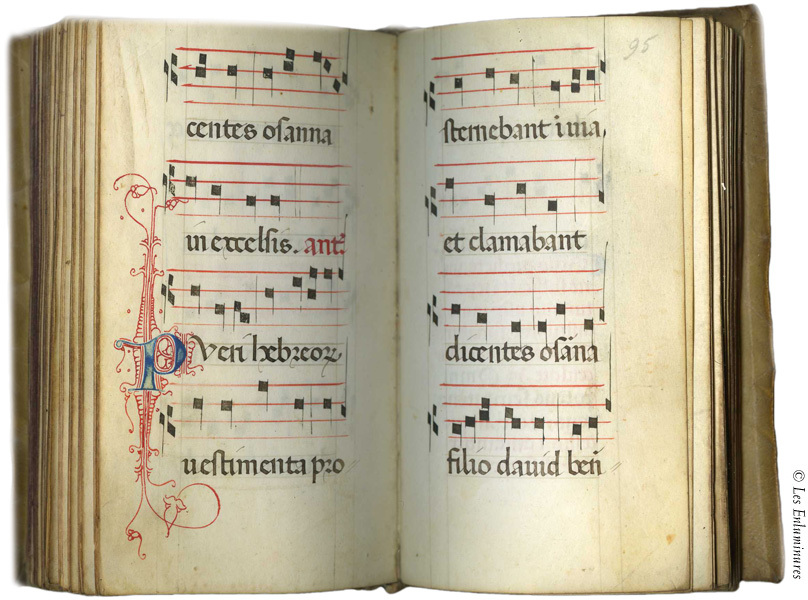 centes osanna
in excelsis. ant̃
Pueri hebreorꝝ
uestimenta pro
95
sternebant i uia,
et clamabant
dicentes osãna
filio dauid beñ
© Les Enluminures